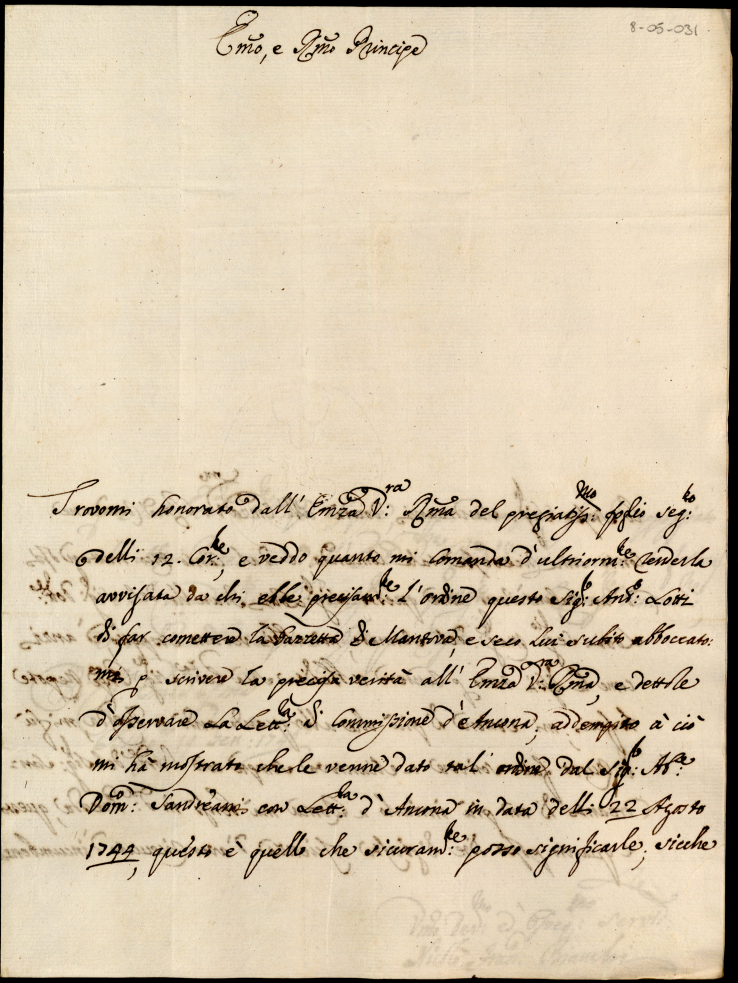 8-05-031
Em̃o, e Rm̃o Principe
Trovomi honorato dall' Emza V:ra Rm̃a del pregiatiss:mo foglio seg:to
delli 12. Cor:te, e veddo quanto mi comanda d'ulteriorm:te renderla
avvisata da chi ebbe precisam:te l'ordine questo Sig:r And:a Lotti
di far comettere la Gazzetta di Mantova, e seco lui subito abboccato:
mi p scrivere la precisa verità all' Emza V:ra Rm̃a, e dettole
d'osservare La Lett:ra di Commissione d'Ancona, addempito à ciò
mi hà mostrato che le venne dato tal' ordine dal Sig:r Ab:e
Dom:o Sandreani con Lett:ra d'Ancona in data delli 22 Agosto
1744, questo è quello che siccuram:te posso significarle, sicche